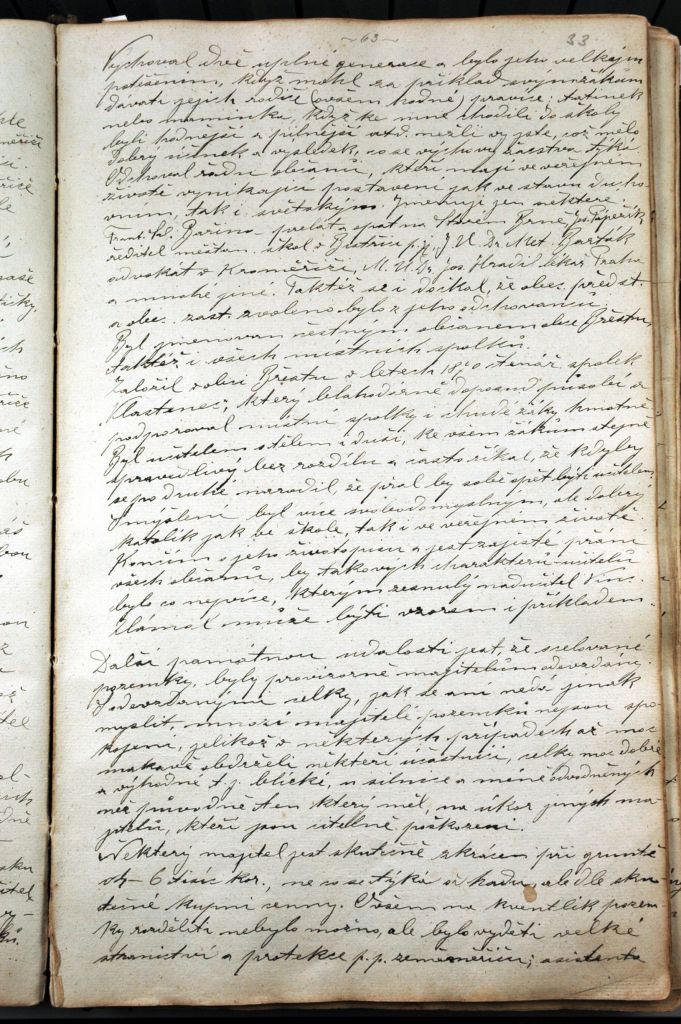 ~ 63 ~
33
Vychoval dvě úplné generace a bylo jeho velkým
potěšením, když mohl za příklad svým žákům
dávati jejich rodiče (ovšem hodné) pravíce: tatínek
nebo maminka, když ke mně chodili do školy
byli hodnější a pilnější atd. nežli vy jste, což mělo
dobrý účinek a výsledek, co se výchovy žactva týká.
Odchoval řadu občanů, kteří mají ve veřejném
životě vynikající postavení jak ve stavu ducho-
vním, tak i světským. Jmenuji jen některé:
Frant. Sal. Bařina - prelát a opat na Starém Brně, Jos. Papežík,
ředitel měšťan. škol v Bystřici p. H., J. U. Dr. Met. Barták
advokát v Kroměříži, M. U. Dr. Jos. Hradil lékař Praha
a mnohé jiné. Taktéž se i dočkal, že obec. předst.
a obec. zast. zvoleno bylo z jeho odchovanců.
Byl jmenován čestným občanem obce Břestu,
taktéž i všech místních spolků.
Založil v obci Břestu v letech 1870 čtenář. spolek
„Vlastenec“, který blahodárně doposud působí a
podporoval místní spolky i chudé žáky hmotně.
Byl učitelem s tělem i duší, ke všem žákům stejně
spravedlivý bez rozdílu a často říkal, že kdyby
se po druhé narodil, že přál by sobě opět býti učitelem.
Smýšlení byl více svobodomyslným, ale dobrý
katolík jak ve škole, tak i ve veřejném životě.
Končím s jeho životopisem a jest zajisté přání
všech občanů, by takových charakterů-učitelů
bylo co nejvíce, kterým zesnulý nadučitel Vinc.
Sláma može býti vzorem i příkladem.
Další památnou událostí jest, že scelované
pozemky, byly provizorně majitelům odevzdány.
S odevzdanými celky, jak se ani nedá jinak
myslit, mnozí majitelé pozemků nejsou spo-
kojeni, jelikož v některých případech až moc
makavě obdrželi někteří účastníci, celky moc dobré
a výhodné t. j. blízké, u silnice a méně odvodněných
než původně ten který měl, na úkor jiných ma-
jitelů, kteří jsou citelně poškozeni.
Některý majitel jest skutečně zkrácen při gruntě
o 4 - 6 tisíc kor., ne co se týká odhadu, ale dle sku-
tečné kupní cenny. Ovšem na kventlík pozem-
ky rozděliti nebylo možno, ale bylo viděti velké
stranictví a protekce p. p. zeměměřičů; asistenta